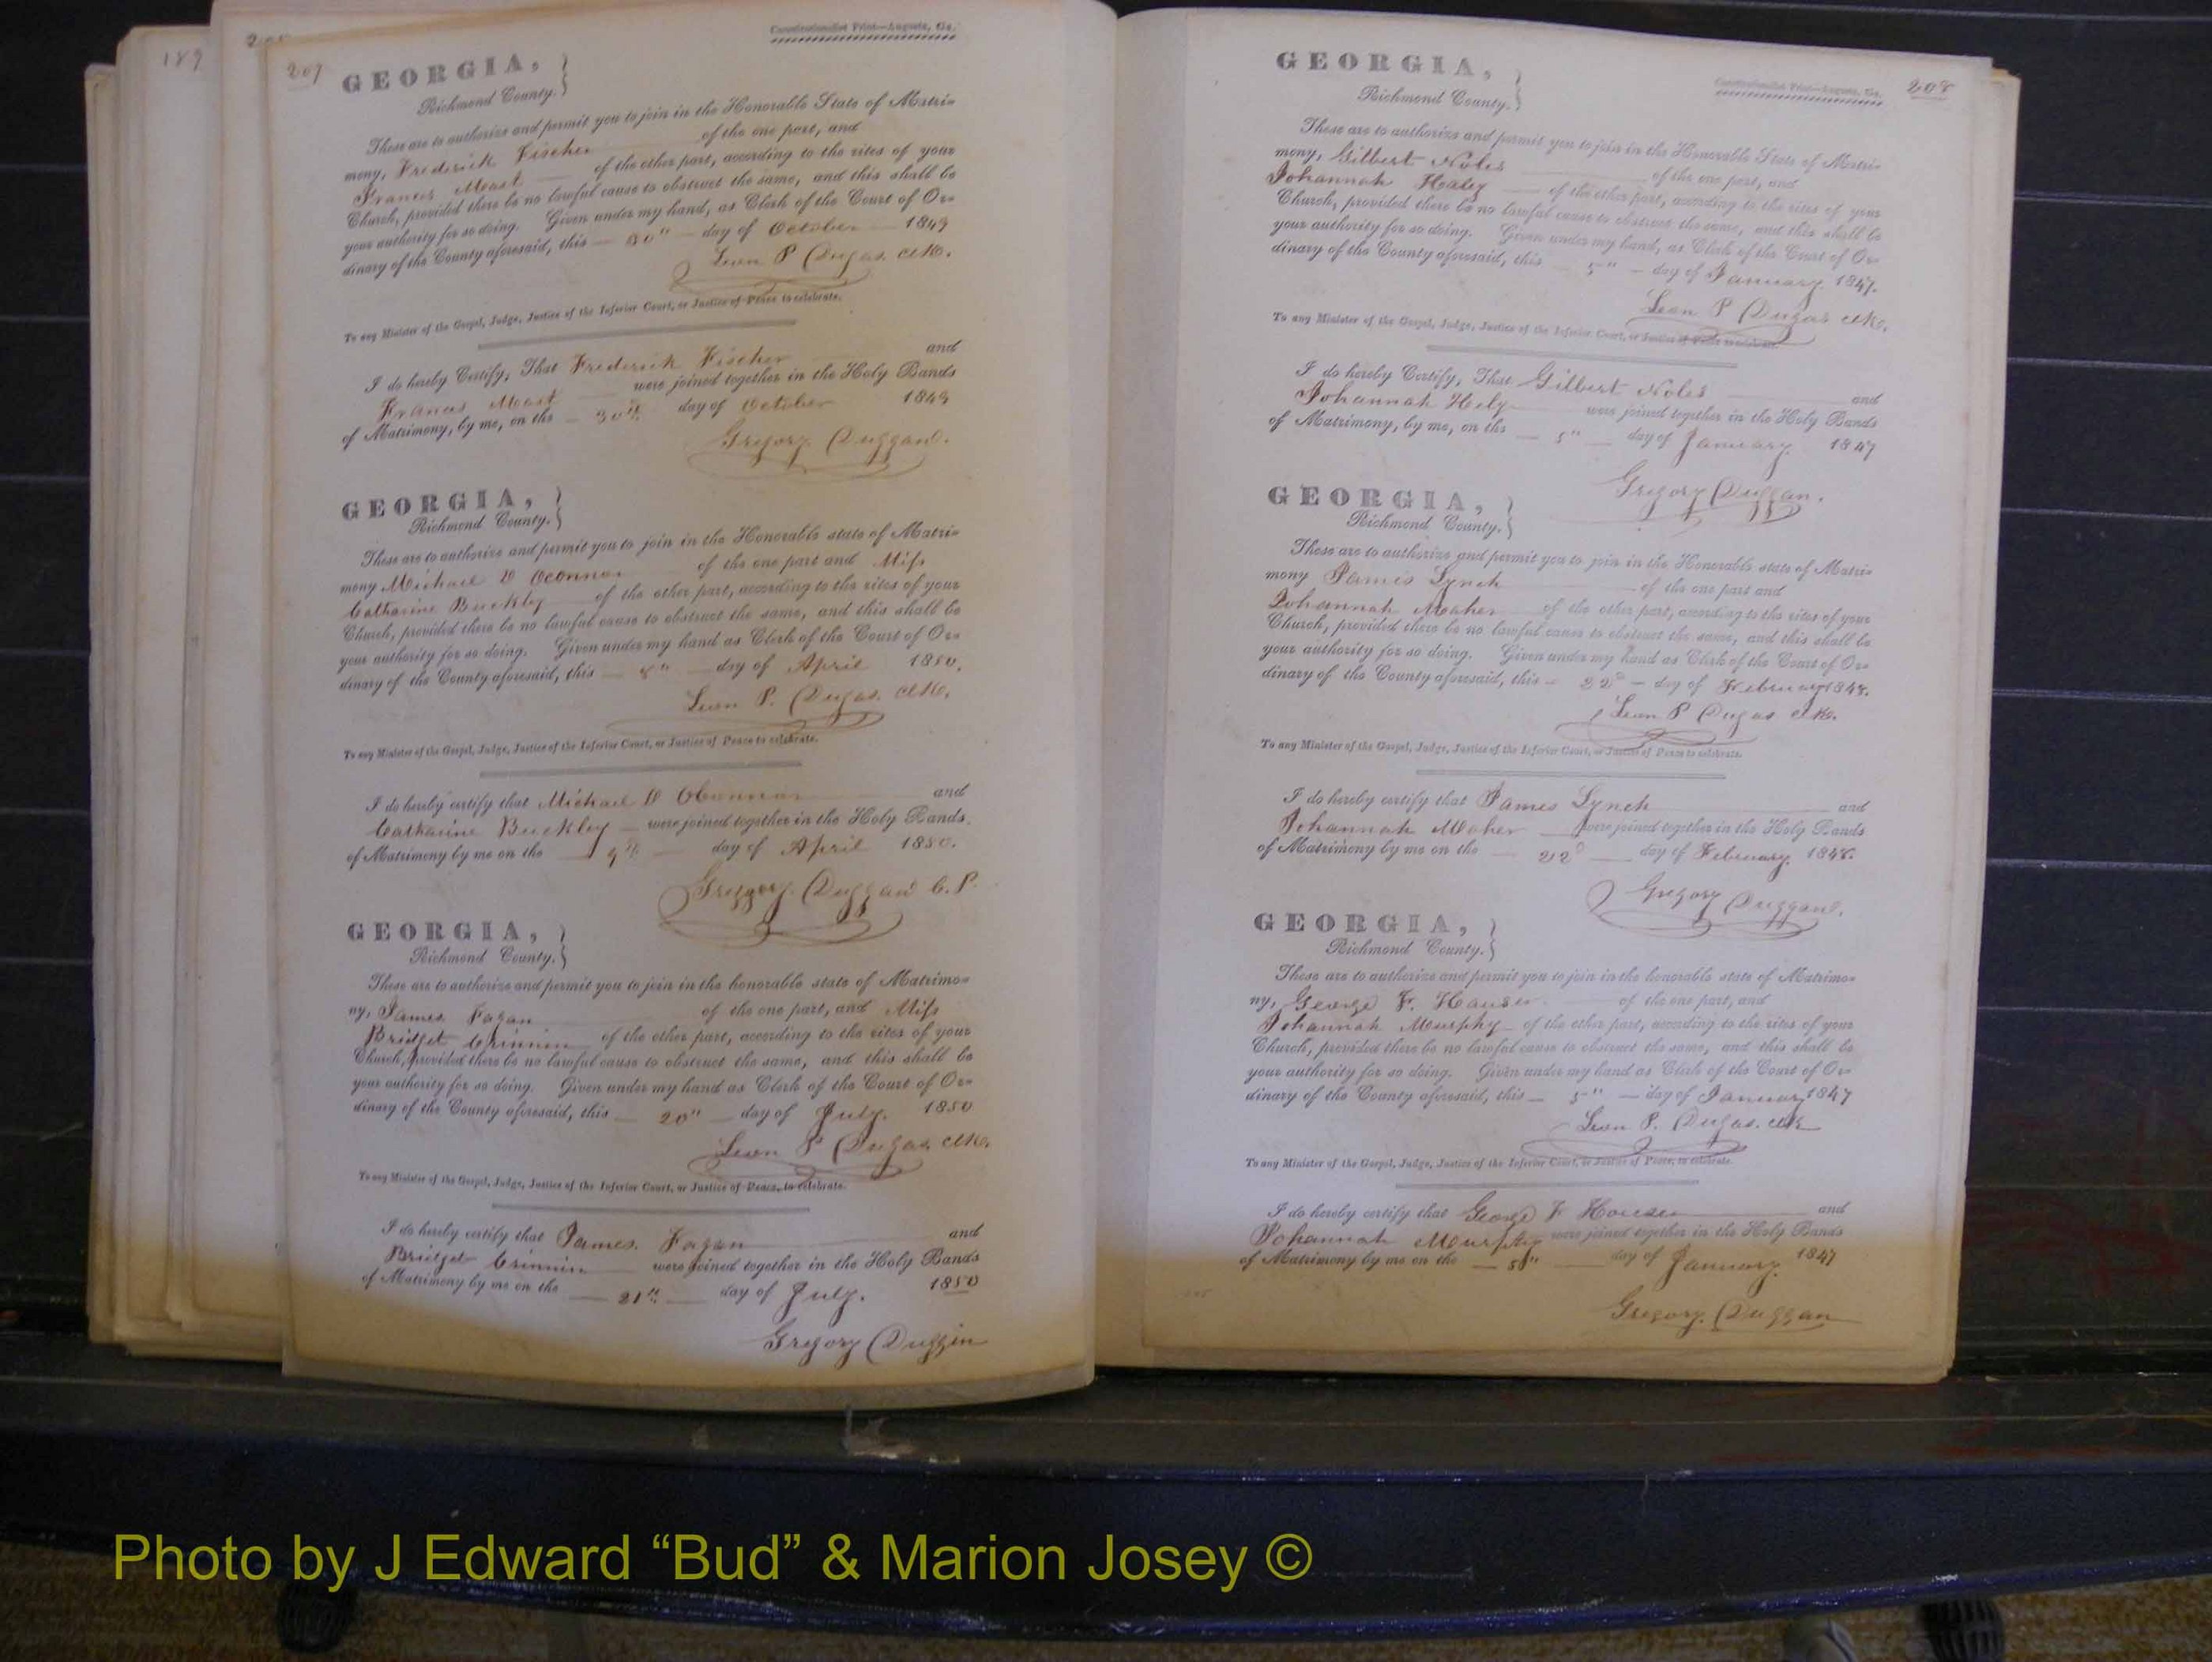 189
207
Constitutionalist Print—Augusta, Ga.
GEORGIA,
Richmond County.
These are to authorize and permit you to join in the Honorable State of Matri-
mony, Frederick Fischer of the one part, and
Frances Moast of the other part, according to the rites of your
Church, provided there be no lawful cause to obstruct the same, and this shall be
your authority for so doing. Given under my hand, as Clerk of the Court of Or-
dinary of the County aforesaid, this 30" day of October 1849
Leon P Dugas. Clk.
To any Minister of the Gospel, Judge, Justice of the Inferior Court, or Justice of Peace to celebrate.
I do hereby Certify, That Frederick Fischer and
Frances Moast were joined together in the Holy Bands
of Matrimony, by me, on the 30th day of October 1849
Gregory Duggan.
GEORGIA,
Richmond County.
These are to authorize and permit you to join in the Honorable state of Matri-
mony Michael D OConnor of the one part and Miss
Catharine Buckley of the other part, according to the rites of your
Church, provided there be no lawful cause to obstruct the same, and this shall be
your authority for so doing. Given under my hand as Clerk of the Court of Or-
dinary of the County aforesaid, this day of April 1850.
Leon P. Dugas. Clk.
To any Minister of the Gospel, Judge, Justice of the Inferior Court, or Justice of Peace to celebrate.
I do hereby certify that Michael D OConnor and
Catharine Buckley were joined together in the Holy Bands
of Matrimony by me on the day of April 1850.
Gregory. Duggan C. P.
GEORGIA,
Richmond County.
These are to authorize and permit you to join in the honorable state of Matrimo-
ny, James Fagan of the one part, and Miss
Bridget Crinnin of the other part, according to the rites of your
Church, provided there be no lawful cause to obstruct the same, and this shall be
your authority for so doing. Given under my hand as Clerk of the Court of Or-
dinary of the County aforesaid, this 20" day of July. 1850
Leon P Dugas. Clk.
To any Minister of the Gospel, Judge, Justice of the Inferior Court, or Justice of Peace, to celebrate.
I do hereby certify that James. Fagan and
Bridget Crinnin were joined together in the Holy Bands
of Matrimony by me on the 21st day of July. 1850
Gregory Duggin
208
Constitutionalist Print—Augusta, Ga.
GEORGIA,
Richmond County.
These are to authorize and permit you to join in the Honorable State of Matri-
mony, Gilbert Noles of the one part, and
Johannah Haley of the other part, according to the rites of your
Church, provided there be no lawful cause to obstruct the same, and this shall be
your authority for so doing. Given under my hand, as Clerk of the Court of Or-
dinary of the County aforesaid, this 5" day of January. 1847.
Leon P Dugas Clk.
To any Minister of the Gospel, Judge, Justice of the Inferior Court, or Justice of Peace to celebrate.
I do hereby Certify, That Gilbert Noles and
Johannah Hely were joined together in the Holy Bands
of Matrimony, by me, on the 5" day of January. 1847
Gregory Duggan.
GEORGIA,
Richmond County.
These are to authorize and permit you to join in the Honorable state of Matri-
mony James Lynch of the one part and
Johannah Meaher of the other part, according to the rites of your
Church, provided there be no lawful cause to obstruct the same, and this shall be
your authority for so doing. Given under my hand as Clerk of the Court of Or-
dinary of the County aforesaid, this 22d day of February 1848.
Leon P Dugas Clk.
To any Minister of the Gospel, Judge, Justice of the Inferior Court, or Justice of Peace to celebrate.
I do hereby certify that James Lynch and
Johannah Maher were joined together in the Holy Bands
of Matrimony by me on the 22d day of February. 1848.
Gregory Duggan.
GEORGIA,
Richmond County.
These are to authorize and permit you to join in the honorable state of Matrimo-
ny, George F. Hauser of the one part, and
Johannah Murphy of the other part, according to the rites of your
Church, provided there be no lawful cause to obstruct the same, and this shall be
your authority for so doing. Given under my hand as Clerk of the Court of Or-
dinary of the County aforesaid, this 5" day of January 1847
Leon P. Dugas. Clk
To any Minister of the Gospel, Judge, Justice of the Inferior Court, or Justice of Peace, to celebrate.
I do hereby certify that George F Houser and
Johannah Murphy were joined together in the Holy Bands
of Matrimony by me on the 5th" day of January. 1847
Gregory. Duggan
Photo by J Edward “Bud” & Marion Josey ©